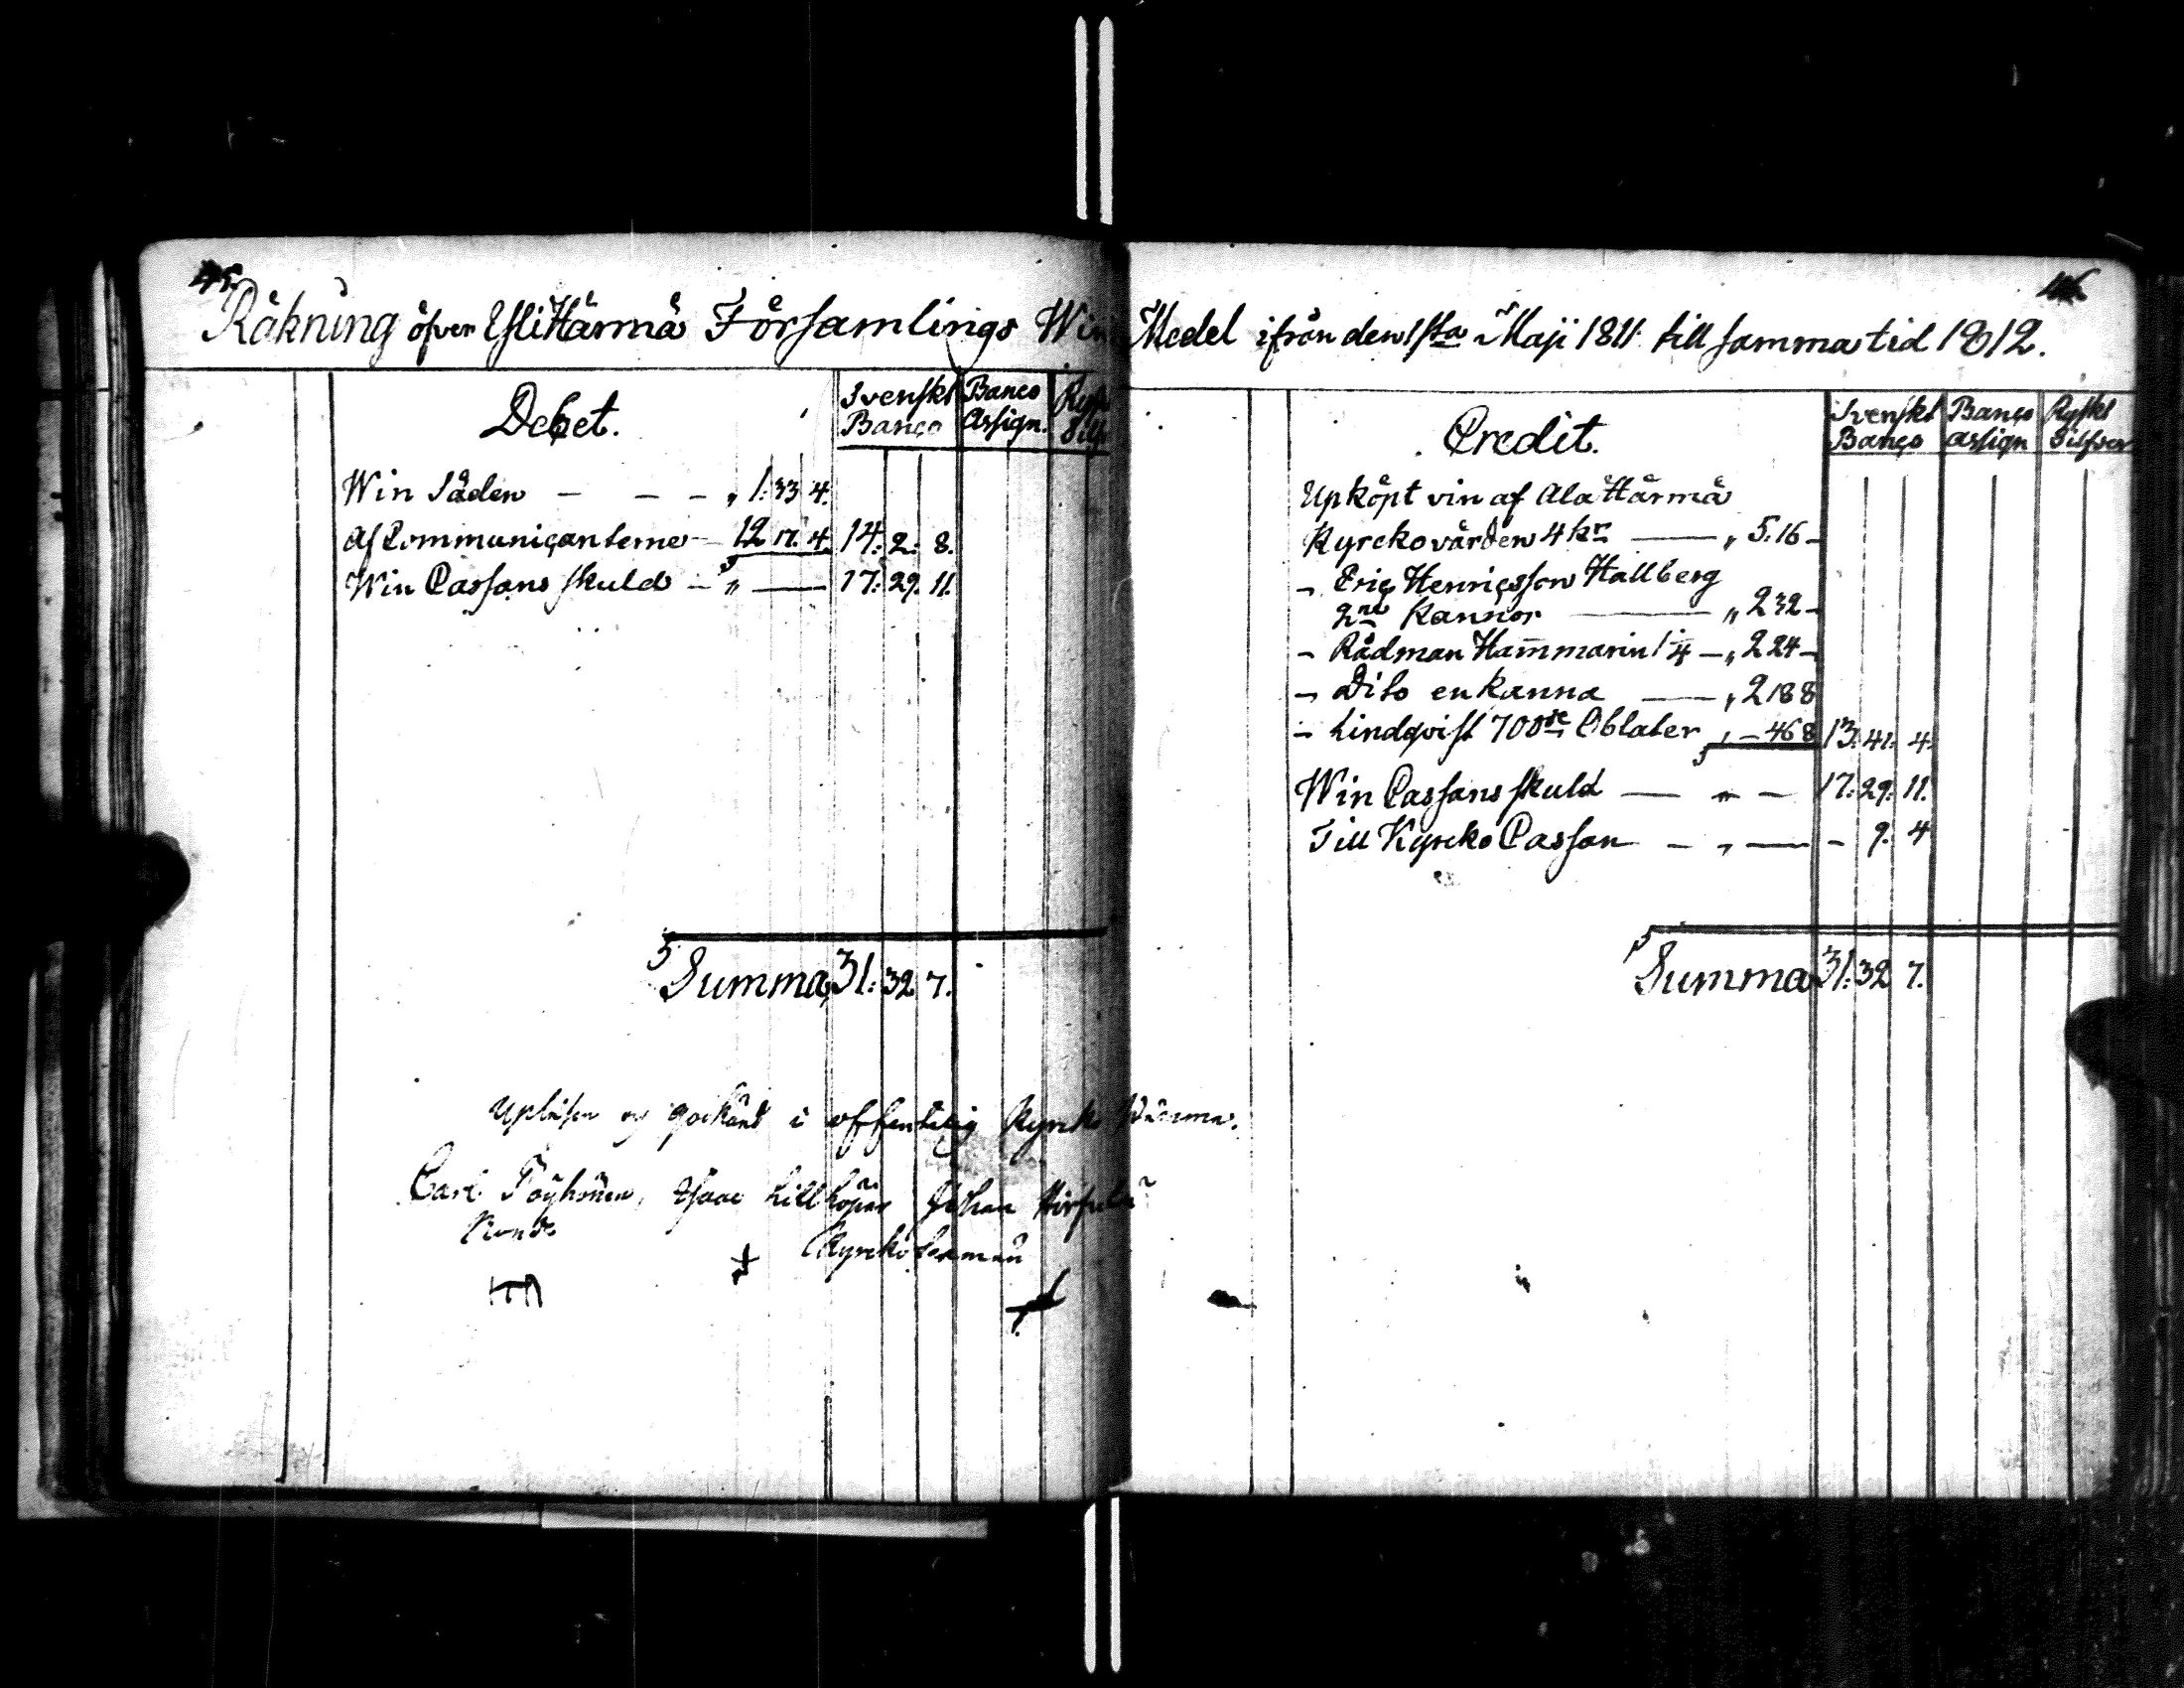 45.
Räkning öfver Ylihärmä Församlings Win
Debet.
Svenskt Banco Rysk
Banco Assign. Silfv
Win Säden — — — „ 1. 33 4.
Af Communicanterne — 12 17. 4. 14: 2: 8.
Win Cassans skuld — „ — 17: 29. 11.
Summa 31: 32 7.
Upläsen og godkänd i offentelig Kyrko Stämma.
Carl Töyhönen, Isaac Lillhojan Johan
Kyrko
46
Medel ifrån den 1sta Maji 1811 till samma tid 1812.
Credit.
Svenskt Banco Ryskt
Banco assign Silfver
Upköpt vin af Alahärmä
Kyrckovärden 4 kr — „ 5. 16 –
– Eric Henricsson Hallberg
2ne Kannor — „ 2 32 –
– Rådman Hammarin 1 1/4 — „ 2 24 –
– Dito en Kanna — „ 2 18 8
– Lindqvist 700de Oblater „ – 46 8 13: 41. 4.
Win Cassans skuld — „ — 17: 29: 11.
Till Kyrcko Cassan — „ — – 9. 4
Summa 31: 32 7.